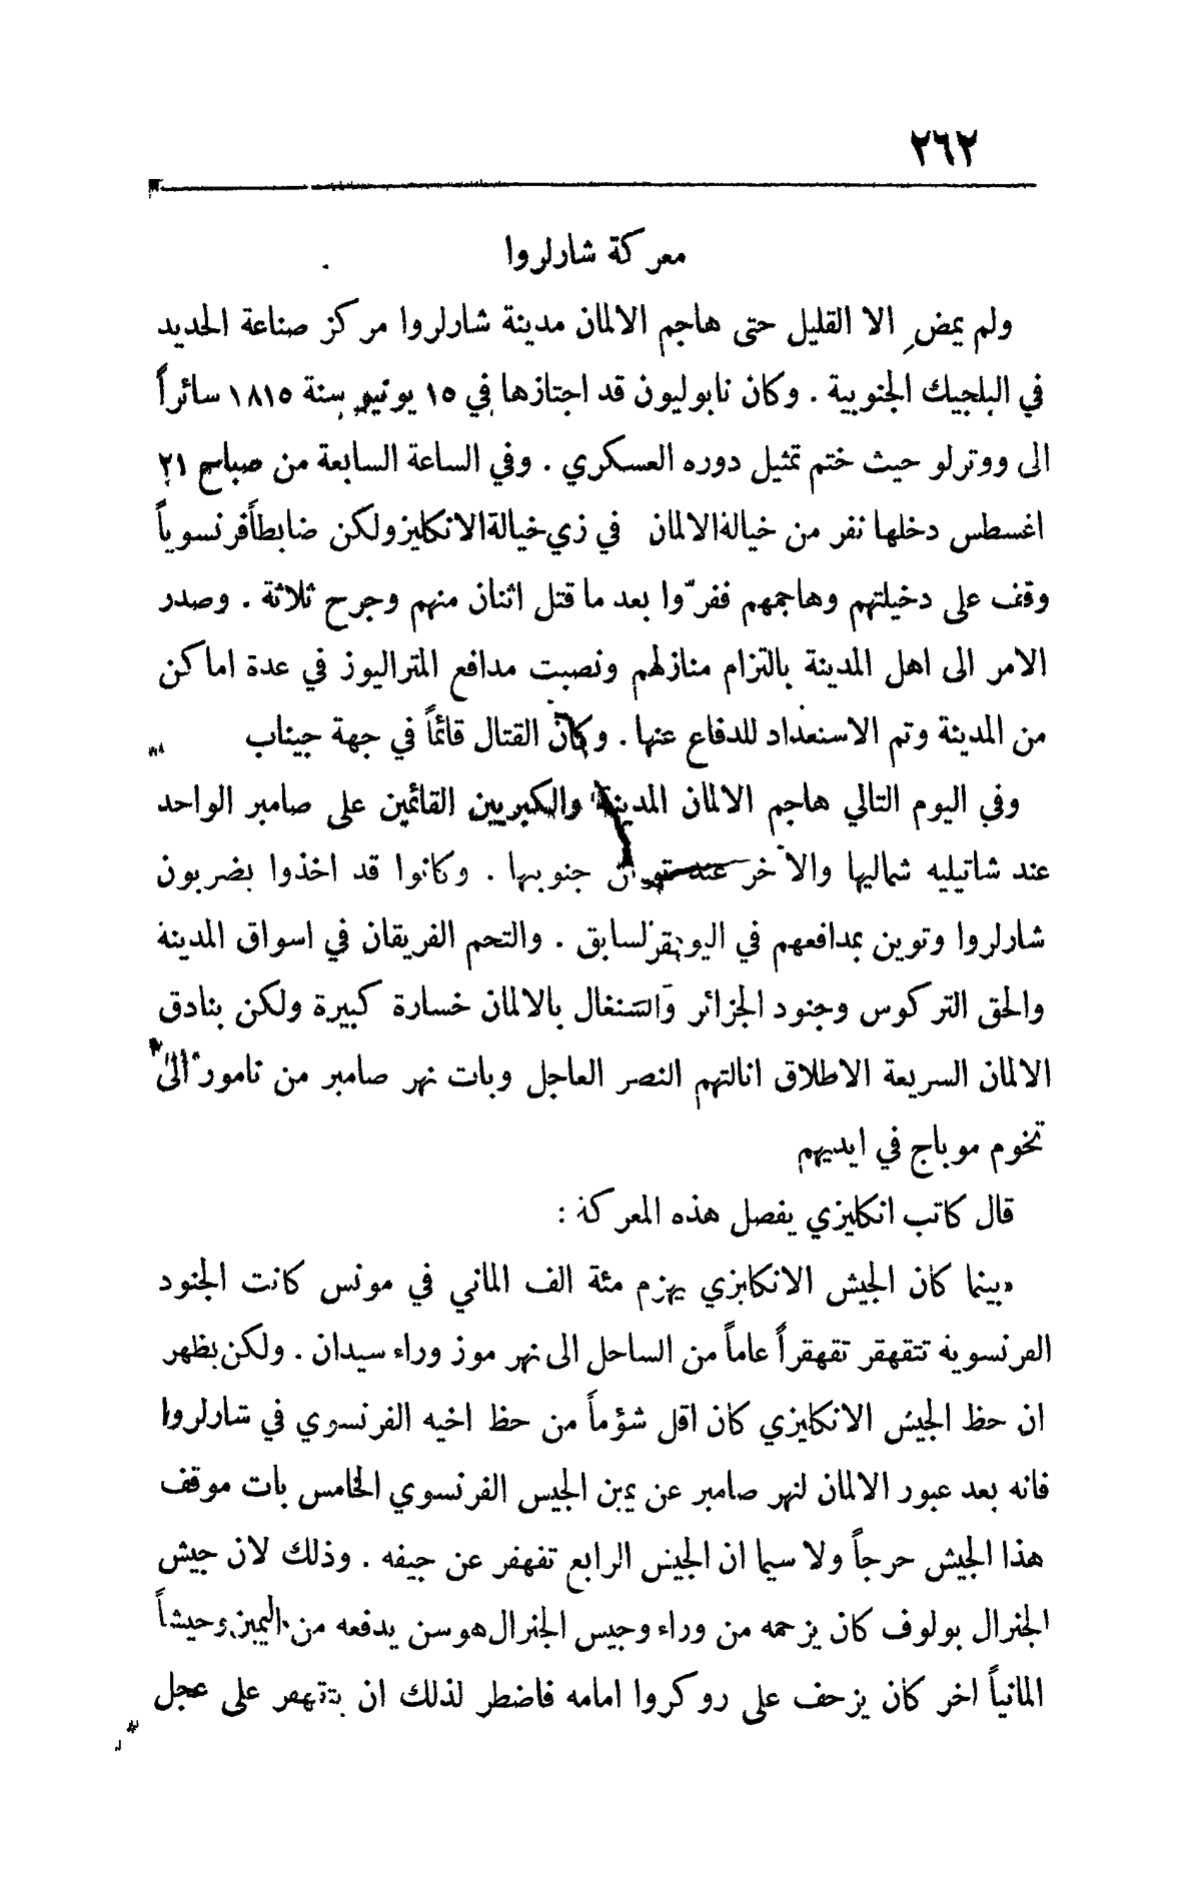 ٢٦٢
معركة شارلروا
ولم يمض الا القليل حتى هاجم الالمان مدينة شارلروا مركز صناعة الحديد
في البلجيك الجنوبية . وكان نابوليون قد اجتازها في ١٥ يونيو سنة ١٨١٥ سائراً
الى ووترلو حيث ختم تمثيل دوره العسكري . وفي الساعة السابعة من صباح ٢١
اغسطس دخلها نفر من خيالة الالمان في زي خيالة الانكليز ولكن ضابطاً فرنسوياً
وقف على دخيلتهم وهاجمهم ففرّوا بعد ما قتل اثنان منهم وجرح ثلاثة . وصدر
الامر الى اهل المدينة بالتزام منازلهم ونصبت مدافع المتراليوز في عدة اماكن
من المدينة وتم الاستعداد للدفاع عنها . وكان القتال قائماً في جهة جيناب
وفي اليوم التالي هاجم الالمان المدينة والكبريين القائمين على صامبر الواحد
عند شاتيليه شماليها والآخر عند جنوبيها . وكانوا قد اخذوا يضربون
شارلروا وتوين بمدافعهم في السابق . والتحم الفريقان في اسواق المدينة
والحق التركوس وجنود الجزائر والسنغال بالالمان خسارة كبيرة ولكن بنادق
الالمان السريعة الاطلاق انالتهم النصر العاجل وبات نهر صامبر من نامور الى
تخوم موباج في ايديهم
قال كاتب انكليزي يفصل هذه المعركة :
«بينما كان الجيش الانكليزي يهزم مئة الف الماني في مونس كانت الجنود
الفرنسوية تتقهقر تقهقراً عاماً من الساحل الى نهر موز وراء سيدان . ولكن يظهر
ان حظ الجيش الانكليزي كان اقل شؤماً من حظ اخيه الفرنسوي في شارلروا
فانه بعد عبور الالمان لنهر صامبر عن يمين الجيش الفرنسوي الخامس بات موقف
هذا الجيش حرجاً ولا سيما ان الجيش الرابع تقهقر عن جيفه . وذلك لان جيش
الجنرال بولوف كان يزحمه من وراء وجيش الجنرال هوسن يدفعه من اليمين وجيشاً
المانياً اخر كان يزحف على روكروا امامه فاضطر لذلك ان يتقهقر على عجل